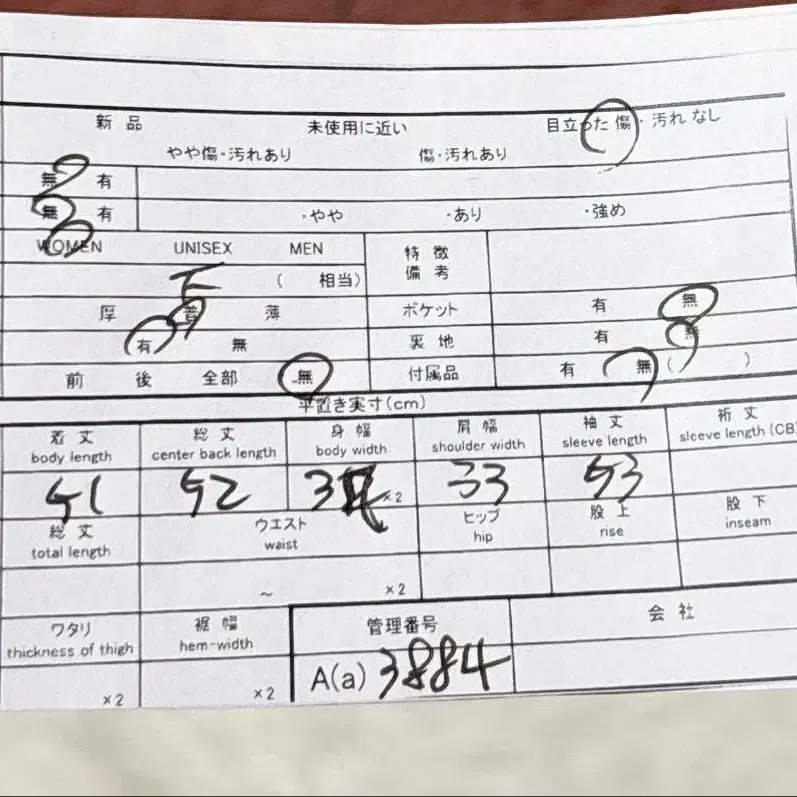 新品 未使用に近い 目立った傷・汚れなし
やや傷・汚れあり 傷・汚れあり
無 有
無 有 ・やや ・あり ・強め
WOMEN UNISEX MEN 特徴
備考
( 相当)
厚 普 薄 ポケット 有 無
有 無 裏地 有 無
前 後 全部 無 付属品 有 無 ( )
平置き実寸(cm)
着丈 総丈 身幅 肩幅 袖丈 裄丈
body length center back length body width shoulder width sleeve length sleeve length (CB)
51 52 ×2 33 53
総丈 ウエスト ヒップ 股上 股下
total length waist hip rise inseam
~ ×2
ワタリ 裾幅 管理番号 会社
thickness of thigh hem-width
×2 ×2 A(a) 3884